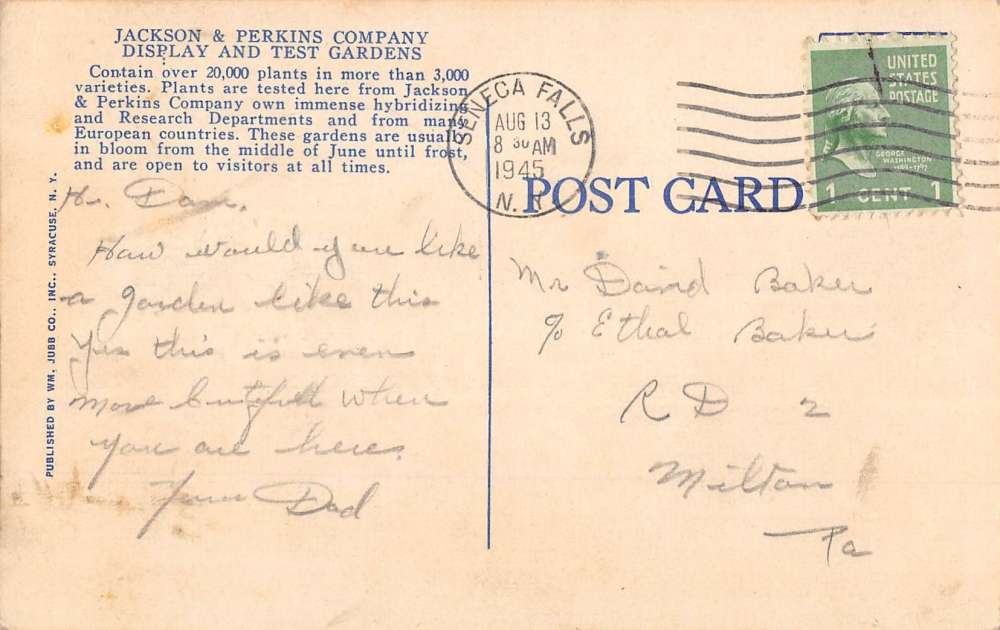 JACKSON & PERKINS COMPANY
DISPLAY AND TEST GARDENS
Contain over 20,000 plants in more than 3,000
varieties. Plants are tested here from Jackson
& Perkins Company own immense hybridizing
and Research Departments and from many
European countries. These gardens are usually
in bloom from the middle of June until frost,
and are open to visitors at all times.
PUBLISHED BY WM. JUBB CO., INC., SYRACUSE, N. Y.
How would you like
a garden like this
Yes this is even
more when
you are here.
Your Dad
SENECA FALLS
AUG 13
8 30 AM
1945
N.Y.
POST CARD
UNITED
STATES
POSTAGE
GEORGE
WASHINGTON
1 CENT 1
Mr David Baker
% Ethal Baker
R D 2
Milton
Pa